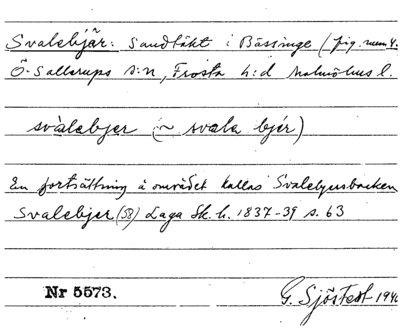 Svalebjär: Sandtäkt i Bässinge (jig. num 4.
Ö. Sallerups s:n, Frosta h:d Malmöhus l.
svàlebjer (~ svala bjér)
En fortsättning å området kallas Svalebjersbacken
Svalebjer (58) Laga Sk. h. 1837-39 s. 63
Nr 5573.
G. Sjöstedt 1940